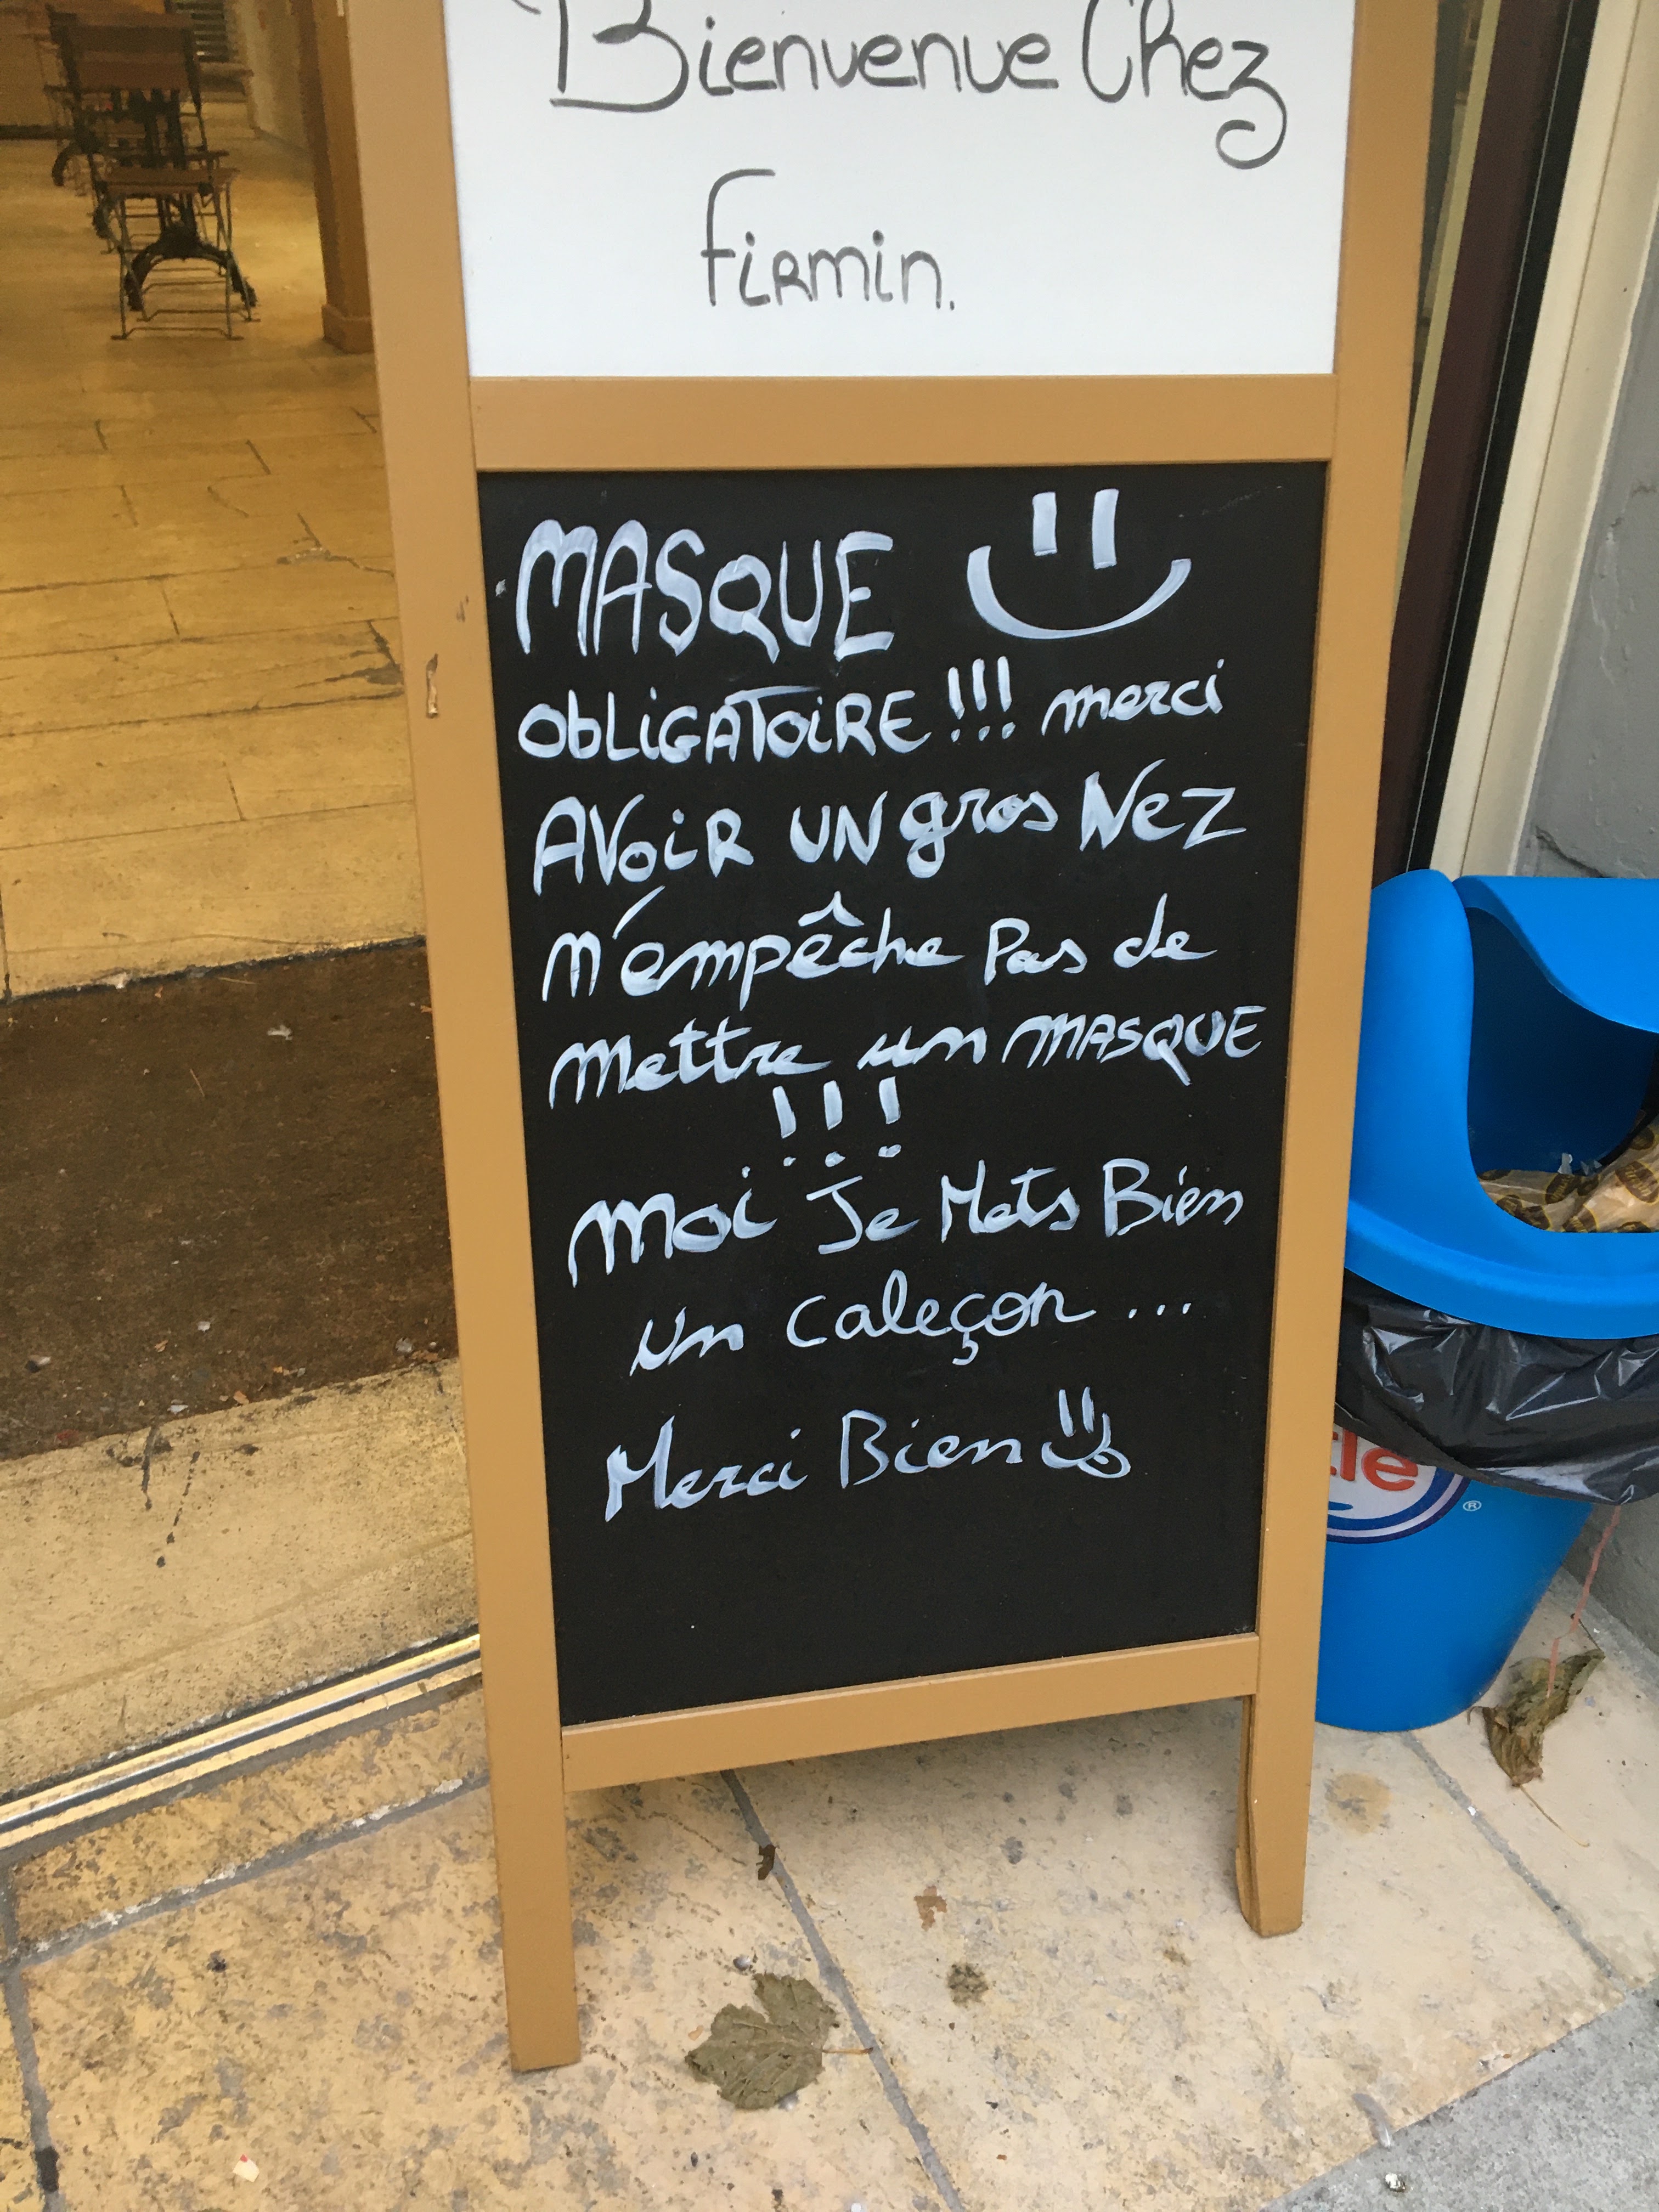 Bienvenue Chez
Firmin.
MASQUE
ObLiGATOiRE !!! merci
AVoiR UN gros Nez
n'empêche Pas de
mettre un MASQUE
!!!
Moi Je Mets Bien
un caleçon ...
Merci Bien
tle
®